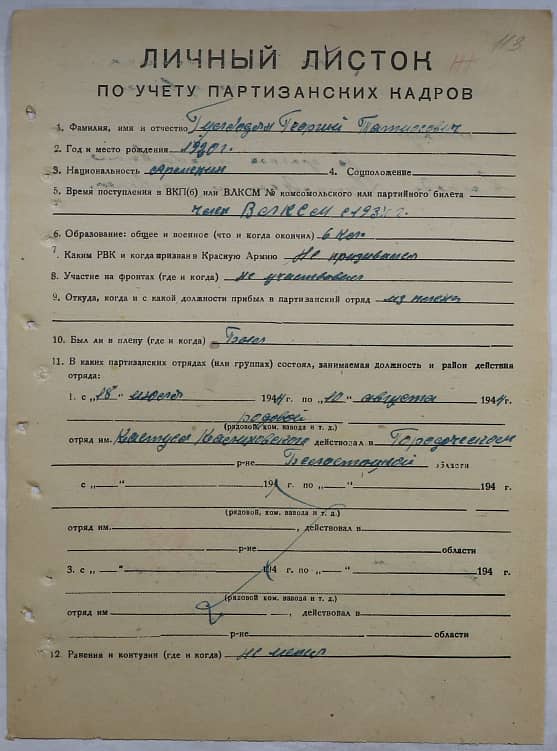 113
ЛИЧНЫЙ ЛИСТОК
ПО УЧЕТУ ПАРТИЗАНСКИХ КАДРОВ
1. Фамилия, имя и отчество Георгий
2. Год и место рождения 1920 г.
3. Национальность армянин 4. Соцположение
5. Время поступления в ВКП(б) или ВЛКСМ № комсомольского или партийного билета
член ВЛКСМ с
6. Образование: общее и военное (что и когда окончил) 6 кл.
7. Каким РВК и когда призван в Красную Армию Не призывался
8. Участие на фронтах (где и когда) не участвовал
9. Откуда, когда и с какой должности прибыл в партизанский отряд из плена
10. Был ли в плену (где и когда) Был
11. В каких партизанских отрядах (или группах) состоял, занимаемая должность и район действия
отряда:
1. с „18" 1944 г. по „10" августа 1944 г.
рядовой
(рядовой, ком. взвода и т. д.)
отряд им. Кастуся Калиновского действовал в
р-не Белостоцкой области
с „ —" 194 г. по „ —" 194 г.
(рядовой, ком. взвода и т. д.)
отряд им. , действовал в
р-не области
3. с „ —" 194 г. по „ —" 194 г.
(рядовой, ком. взвода и т. д.)
отряд им , действовал в
р-не области
12 Ранения и контузии (где и когда) не имел